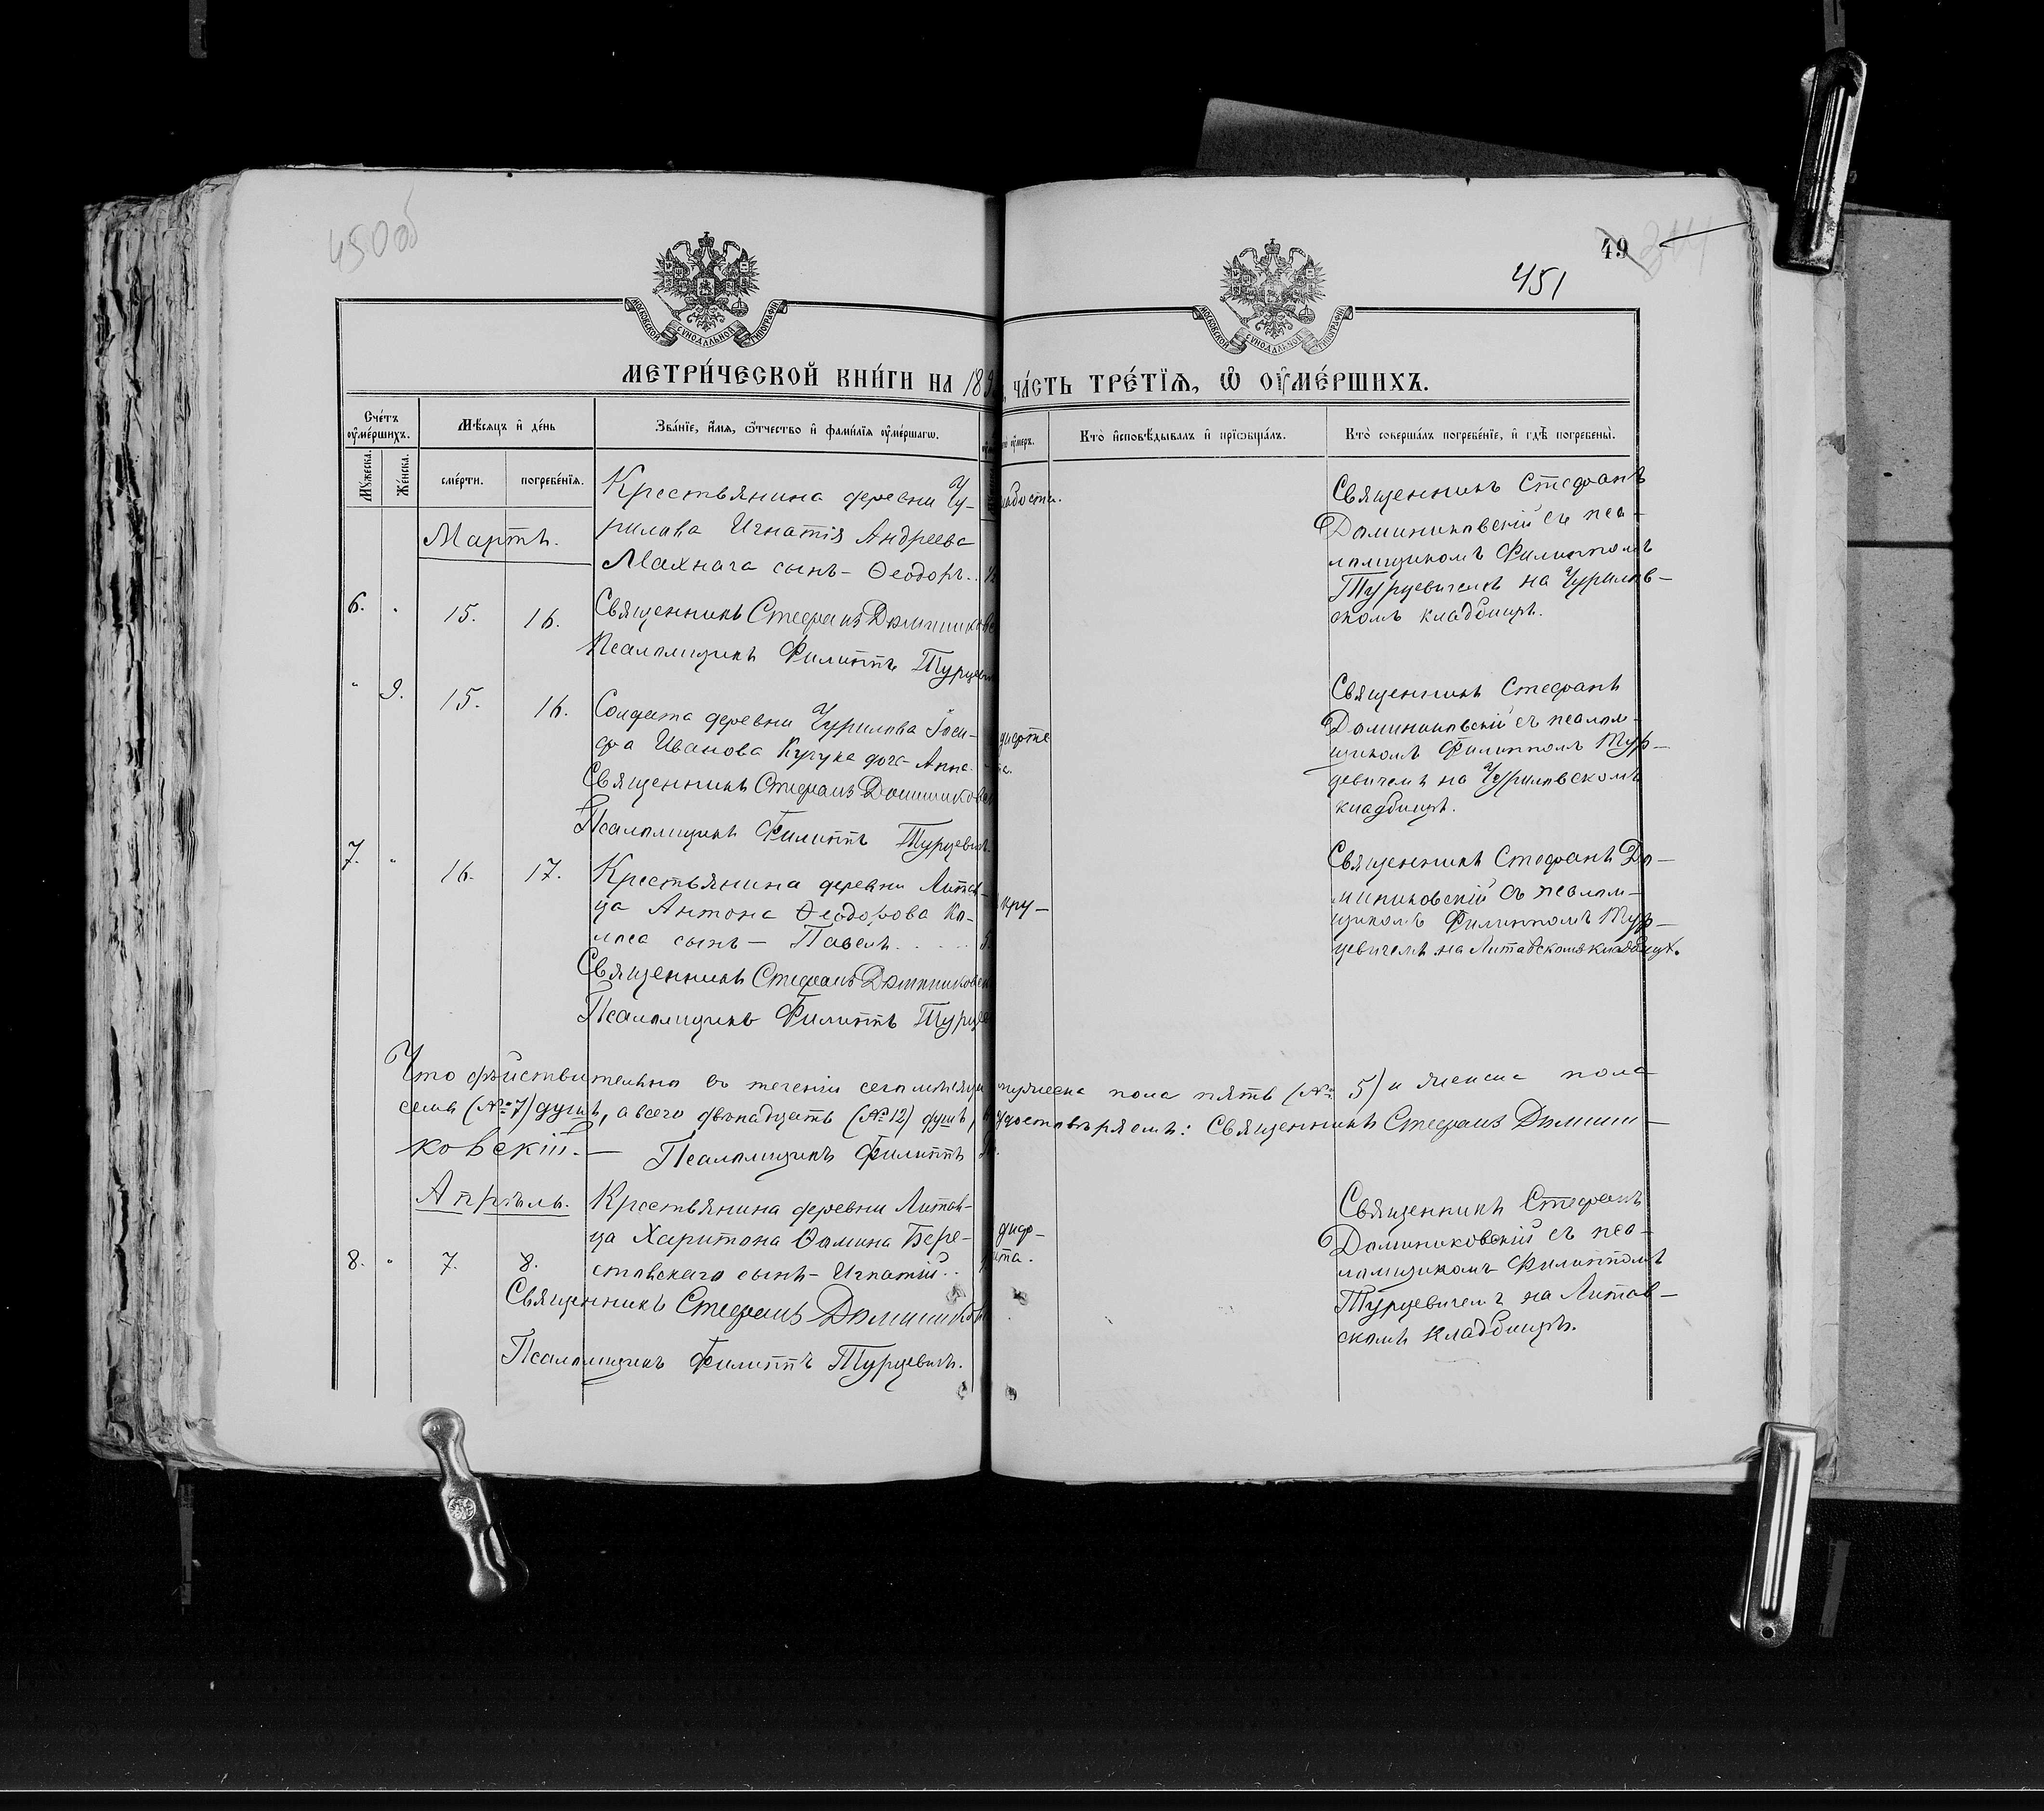 450об
49
451
МОСКОВСКОЙ СУНОДАЛЬНОЙ ТИПОГРАФІИ
МОСКОВСКОЙ СУНОДАЛЬНОЙ ТИПОГРАФІИ
МЕТРИ́ЧЕСКОЙ КНИ́ГИ НА 189 , ЧА́СТЬ ТРЕ́ТІѦ, Ѡ ОУ҆МЕ́РШИХЪ.
Сче́тъ оу҆ме́ршихъ.
Мѣ́сѧцъ и҆ де́нь
Зва́нїе, и҆́мѧ, ѻ҆́тчество и҆ фами́лїѧ оу҆ме́ршагѡ.
оу҆меръ.
Кто̀ и҆сповѣ́дывалъ и҆ прїѡбща́лъ.
Кто̀ соверша́лъ погребе́нїе, и҆ гдѣ̀ погребены̀.
Мꙋ́жеска.
Же́нска.
сме́рти.
погребе́нїѧ.
Мартъ.
Крестьянина деревни Чу-
рилова Игнатія Андреева
Махнача сынъ - Ѳеодоръ..
6. " 15. 16.
Священникъ Стефанъ Доминиковс
Псаломщикъ Филиппъ Турцеви
слабости.
Священникъ Стефанъ
Доминиковскій съ пса-
ломщикомъ Филиппомъ
Турцевичемъ на Чурилов-
скомъ кладбищѣ.
" 9. 15. 16.
Солдата деревни Чурилова Іоси-
фа Иванова Кучука дочь Анна.
Священникъ Стефанъ Доминиковск
Псаломщикъ Филиппъ Турцевичъ.
дифте
Священникъ Стефанъ
Доминиковскій съ псалом-
щикомъ Филиппомъ Тур-
цевичемъ на Чуриловскомъ
кладбищѣ.
7. " 16. 17.
Крестьянина деревни Литав-
ца Антона Ѳеодорова Ко-
лоса сынъ - Павелъ.....
Священникъ Стефанъ Доминиковск
Псаломщикъ Филиппъ Турцев
кру-
Священникъ Стефанъ До-
миниковскій съ псалом-
щикомъ Филиппомъ Тур-
цевичемъ на Литавскомъ кладбищѣ.
Что дѣйствительно въ теченіи сего мѣсяца мужеска пола пять (№ 5) и женска пола
семь (№ 7) душъ, а всего двѣнадцать (№ 12) душъ, удостовѣряемъ: Священникъ Стефанъ Домини-
ковскій. — Псаломщикъ Филиппъ
Апрѣль.
8. " 7. 8.
Крестьянина деревни Литав-
ца Харитона Ѳомина Бере-
стовскаго сынъ - Игнатій..
Священникъ Стефанъ Доминиковс
Псаломщикъ Филиппъ Турцевичъ.
диф-
Священникъ Стефанъ
Доминиковскій съ пса-
ломщикомъ Филиппомъ
Турцевичемъ на Литав-
скомъ кладбищѣ.